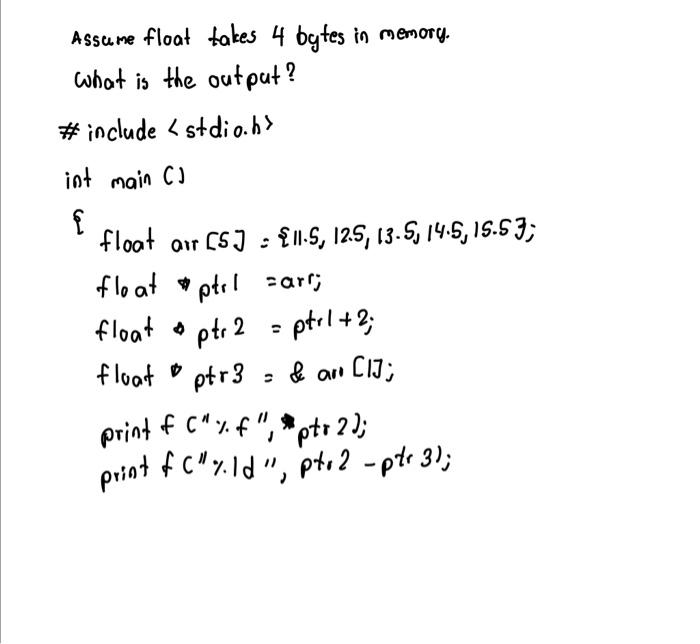 Assume float takes 4 bytes in memory.
What is the output?
# include <stdio.h>
int main ()
{
float arr [5] = {11.5, 12.5, 13.5, 14.5, 15.5};
float * ptr1 = arr;
float * ptr 2 = ptr1 + 2;
float * ptr3 = & arr [1];
print f ("%f", *ptr 2);
print f ("%ld", ptr2 - ptr 3);